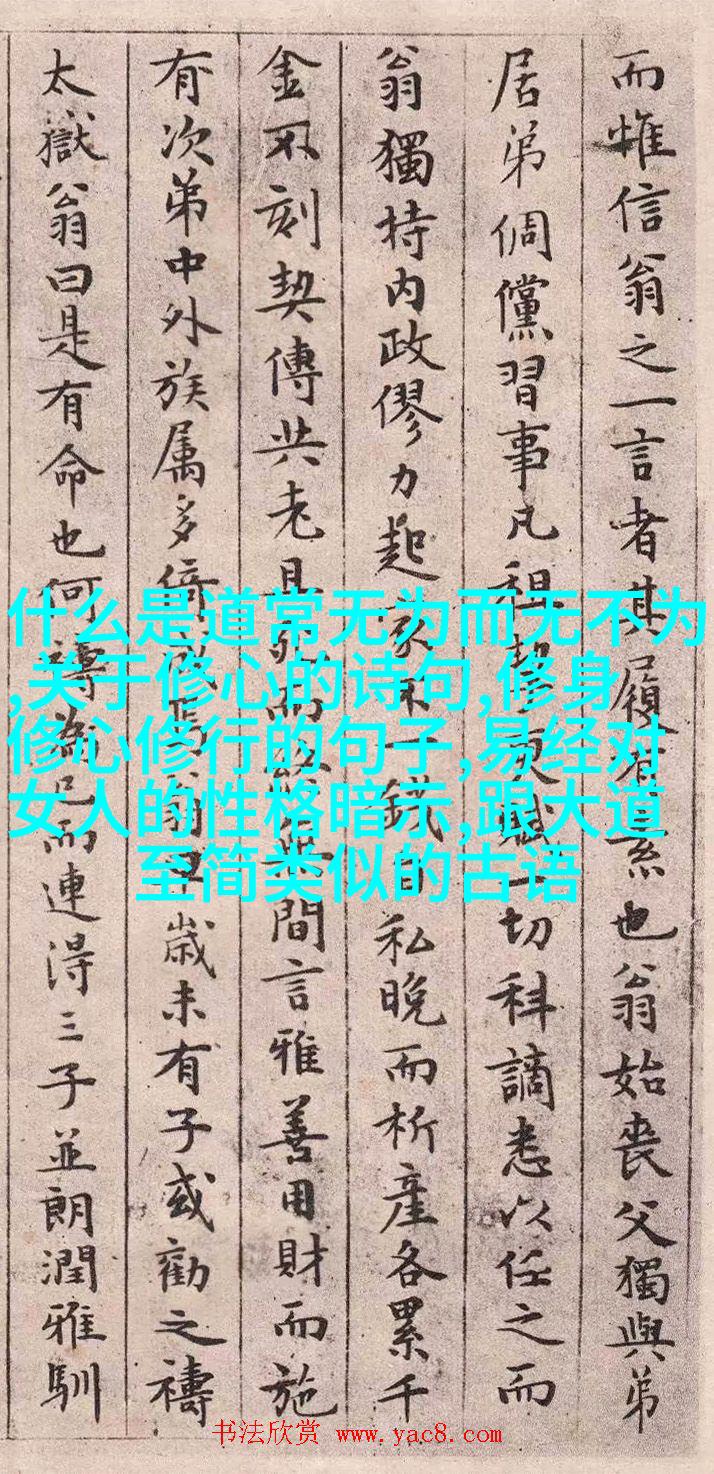 而惟信翁之一言者其履有素也翁始喪父獨與弟
居弟倜儻習事凡租勢更賦一切科謫悉以任之而
翁獨持内政僇力起家不一錢自私晚而析產各累千
金不刻契傳共老且死而無間言雅善用財而施
有次弟中外族属多倚成焉翁早歳未有子或勸之禱
太嶽翁曰是有命也何禱為已而連得三子並朗潤雅馴
什么是道常无为而无不为
,关于修心的诗句,修身
修心修行的句子,易经对
女人的性格暗示,跟大道
至简类似的古语
书法欣赏 www.yac8.com